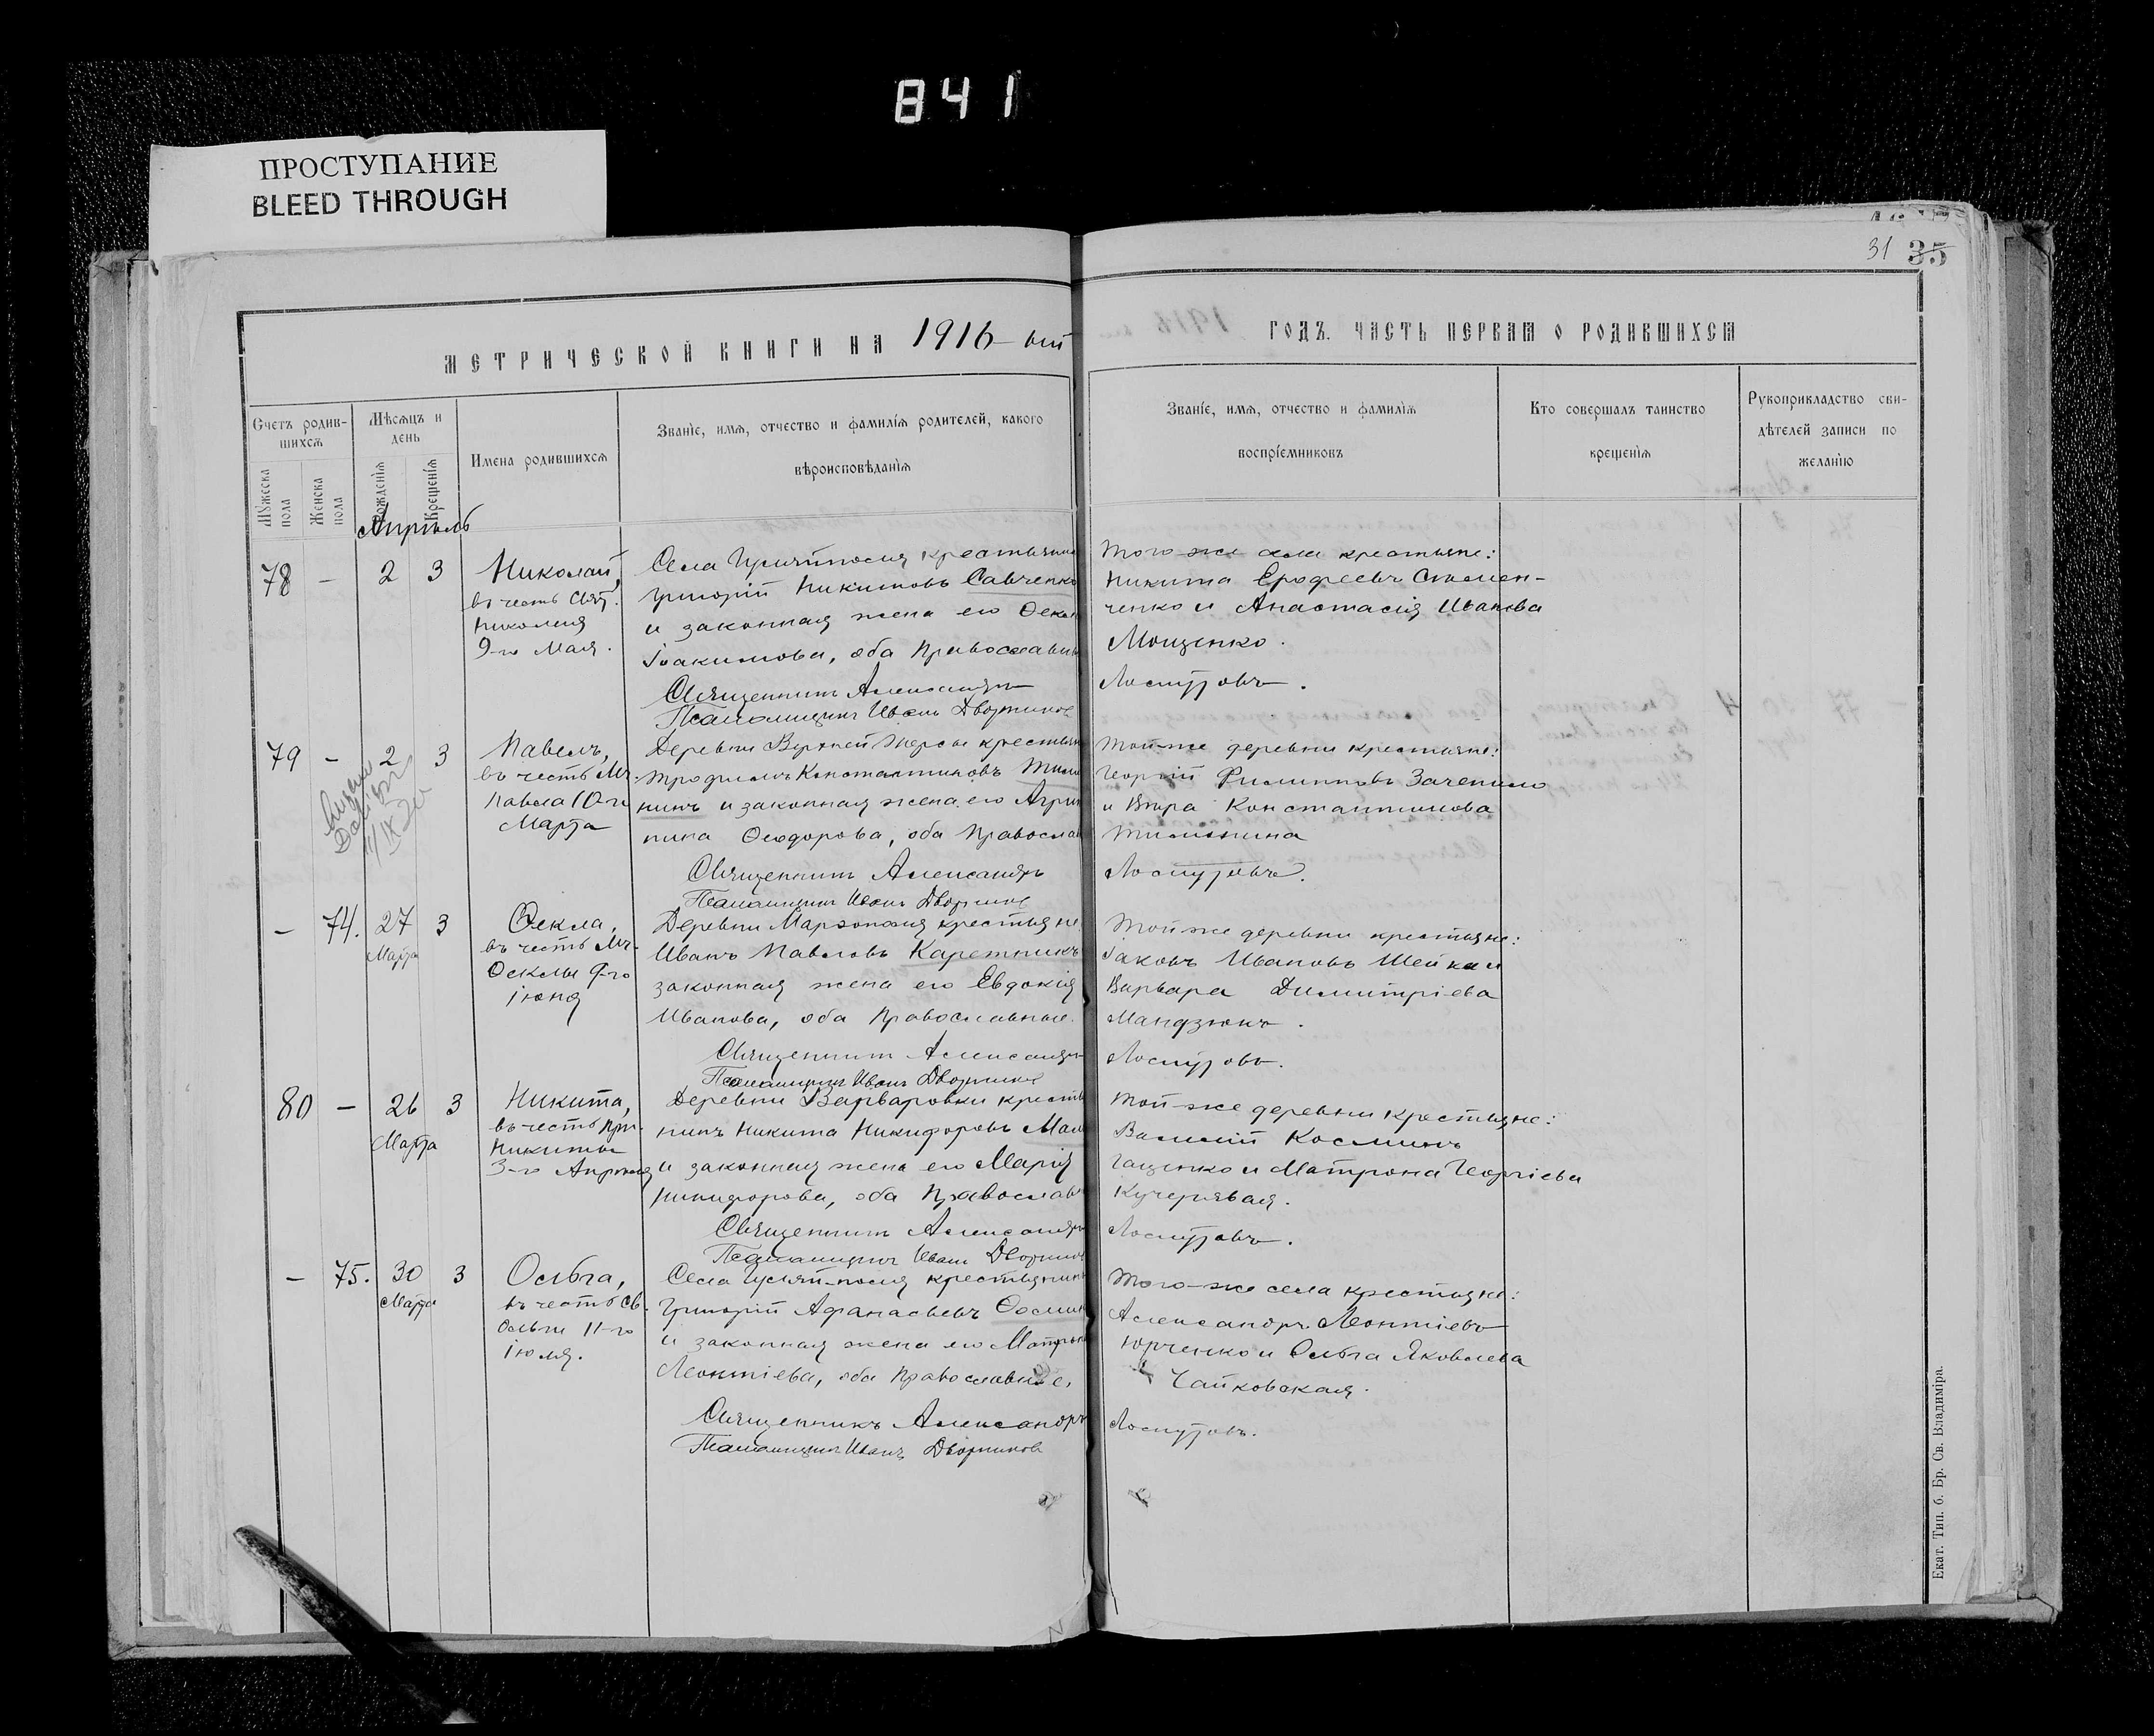 841
ПРОСТУПАНИЕ
BLEED THROUGH
31 35
МЕТРИЧЕСКОЙ КНИГИ НА 1916-ый
ГОДЪ. ЧАСТЬ ПЕРВАЯ О РОДИВШИХСЯ
Счетъ родившихся
Мужеска пола
Женска пола
Мѣсяцъ и день
Рожденія
Крещенія
Имена родившихся
Званіе, имя, отчество и фамилія родителей, какого
вѣроисповѣданія
Званіе, имя, отчество и фамилія
воспріемниковъ
Кто совершалъ таинство
крещенія
Рукоприкладство сви-
дѣтелей записи по
желанію
Апрѣль
78 - 2 3
Николай,
въ честь Свят.
Николая
9-го Мая.
Села крестьянинъ
Григорій Никитовъ Савченко
и законная жена его Ѳекла
Іоакимова, оба Православны
Священникъ Александръ
Псаломщикъ Иванъ Дворниковъ
Того-же села крестьяне:
Никита Ерофеевъ
и Анастасія Иванова
Мощенко.
79 - 2 3
Павелъ,
въ честь Мч.
Павла 10-го
Марта
Деревни Верхней Терсы крестьян
Трофимъ Константиновъ
и законная жена его Агрип
пина Ѳеодорова, оба Православ
Священникъ Александръ
Псаломщикъ Иванъ Дворниковъ
Той-же деревни крестьяне:
Георгій Филипповъ Зачепило
и Вѣра Константинова
- 74. 27 3
Марта
Ѳекла,
въ честь Мч.
Ѳеклы 9-го
Іюня
Деревни крестьяне
Иванъ Павловъ Каретникъ
законная жена его Евдокія
Иванова, оба Православные.
Священникъ Александръ
Псаломщикъ Иванъ Дворниковъ
Той же деревни крестьяне:
Іаковъ Ивановъ Шейка и
Варвара Димитріева
Мандзюкъ.
80 - 26 3
Марта
Никита,
въ честь Прп.
Никиты
3-го Апрѣля
Деревни Варваровки крестья
нинъ Никита Никифоровъ
и законная жена его Марія
Никифорова, оба Православ
Священникъ Александръ
Псаломщикъ Иванъ Дворниковъ
Той-же деревни крестьяне:
Василій Косминъ
Гащенко и Матрона Георгіева
Кучерявая.
- 75. 30 3
Марта
Ольга,
въ честь Св.
Ольги 11-го
Іюля.
Села Гуляй-поля крестьянинъ
Григорій Афанасьевъ
и законная жена его Матрона
Леонтіева, оба Православные,
Священникъ Александръ
Псаломщикъ Иванъ Дворниковъ
Того-же села крестьяне:
Александръ Леонтіевъ
Юрченко и Ольга Яковлева
Чайковская.
Екат. Тип. б. Бр. Св. Владиміра.